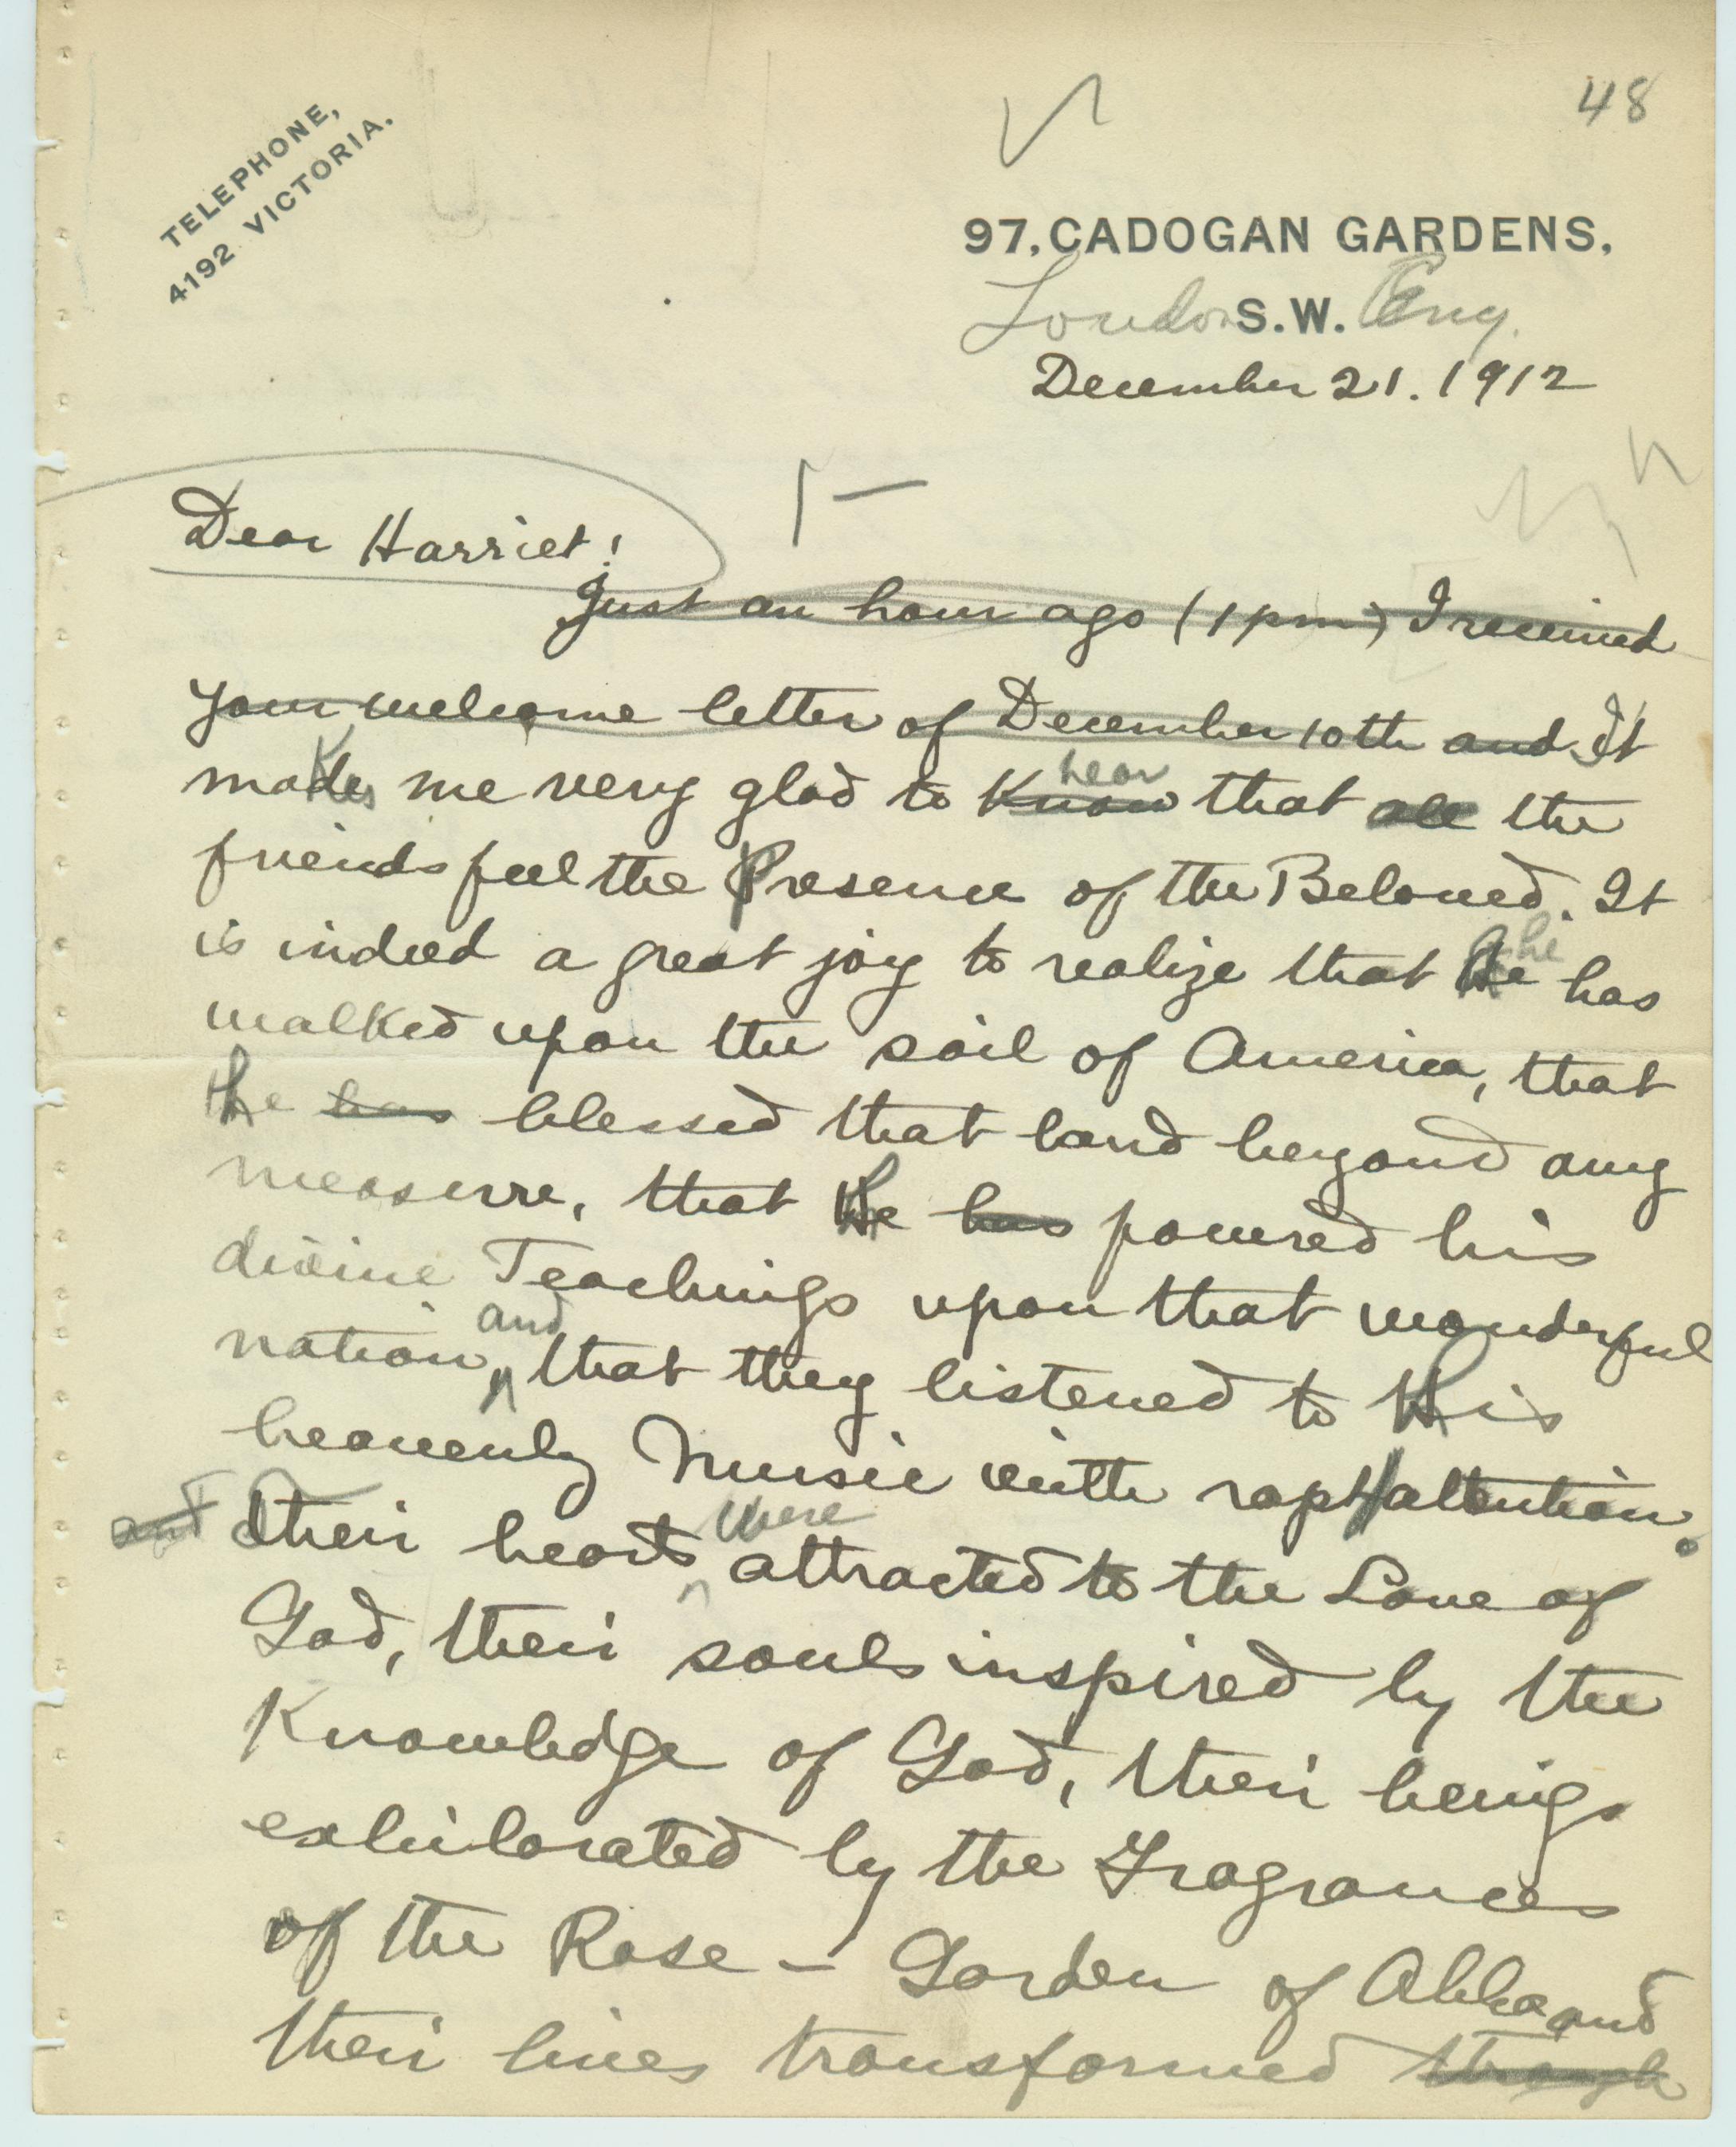 48
TELEPHONE,
4192 VICTORIA.
97, CADOGAN GARDENS,
London S.W. Eng.
December 21. 1912
Dear Harriet!
Just an hour ago (1 pm) I received
your welcome letter of December 10th and It
makes me very glad to know hear that all the
friends feel the Presence of the Beloved. It
is indeed a great joy to realize that he has
walked upon the soil of America, that
he has blessed that land beyond any
measure, that he has poured his
divine Teachings upon that wonderful
nation, and that they listened to his
heavenly Music with rapt attention.
and their hearts were attracted to the Love of
God, their souls inspired by the
Knowledge of God, their beings
exhilorated by the Fragrances
of the Rose - Garden of Abha and
their lives transformed through